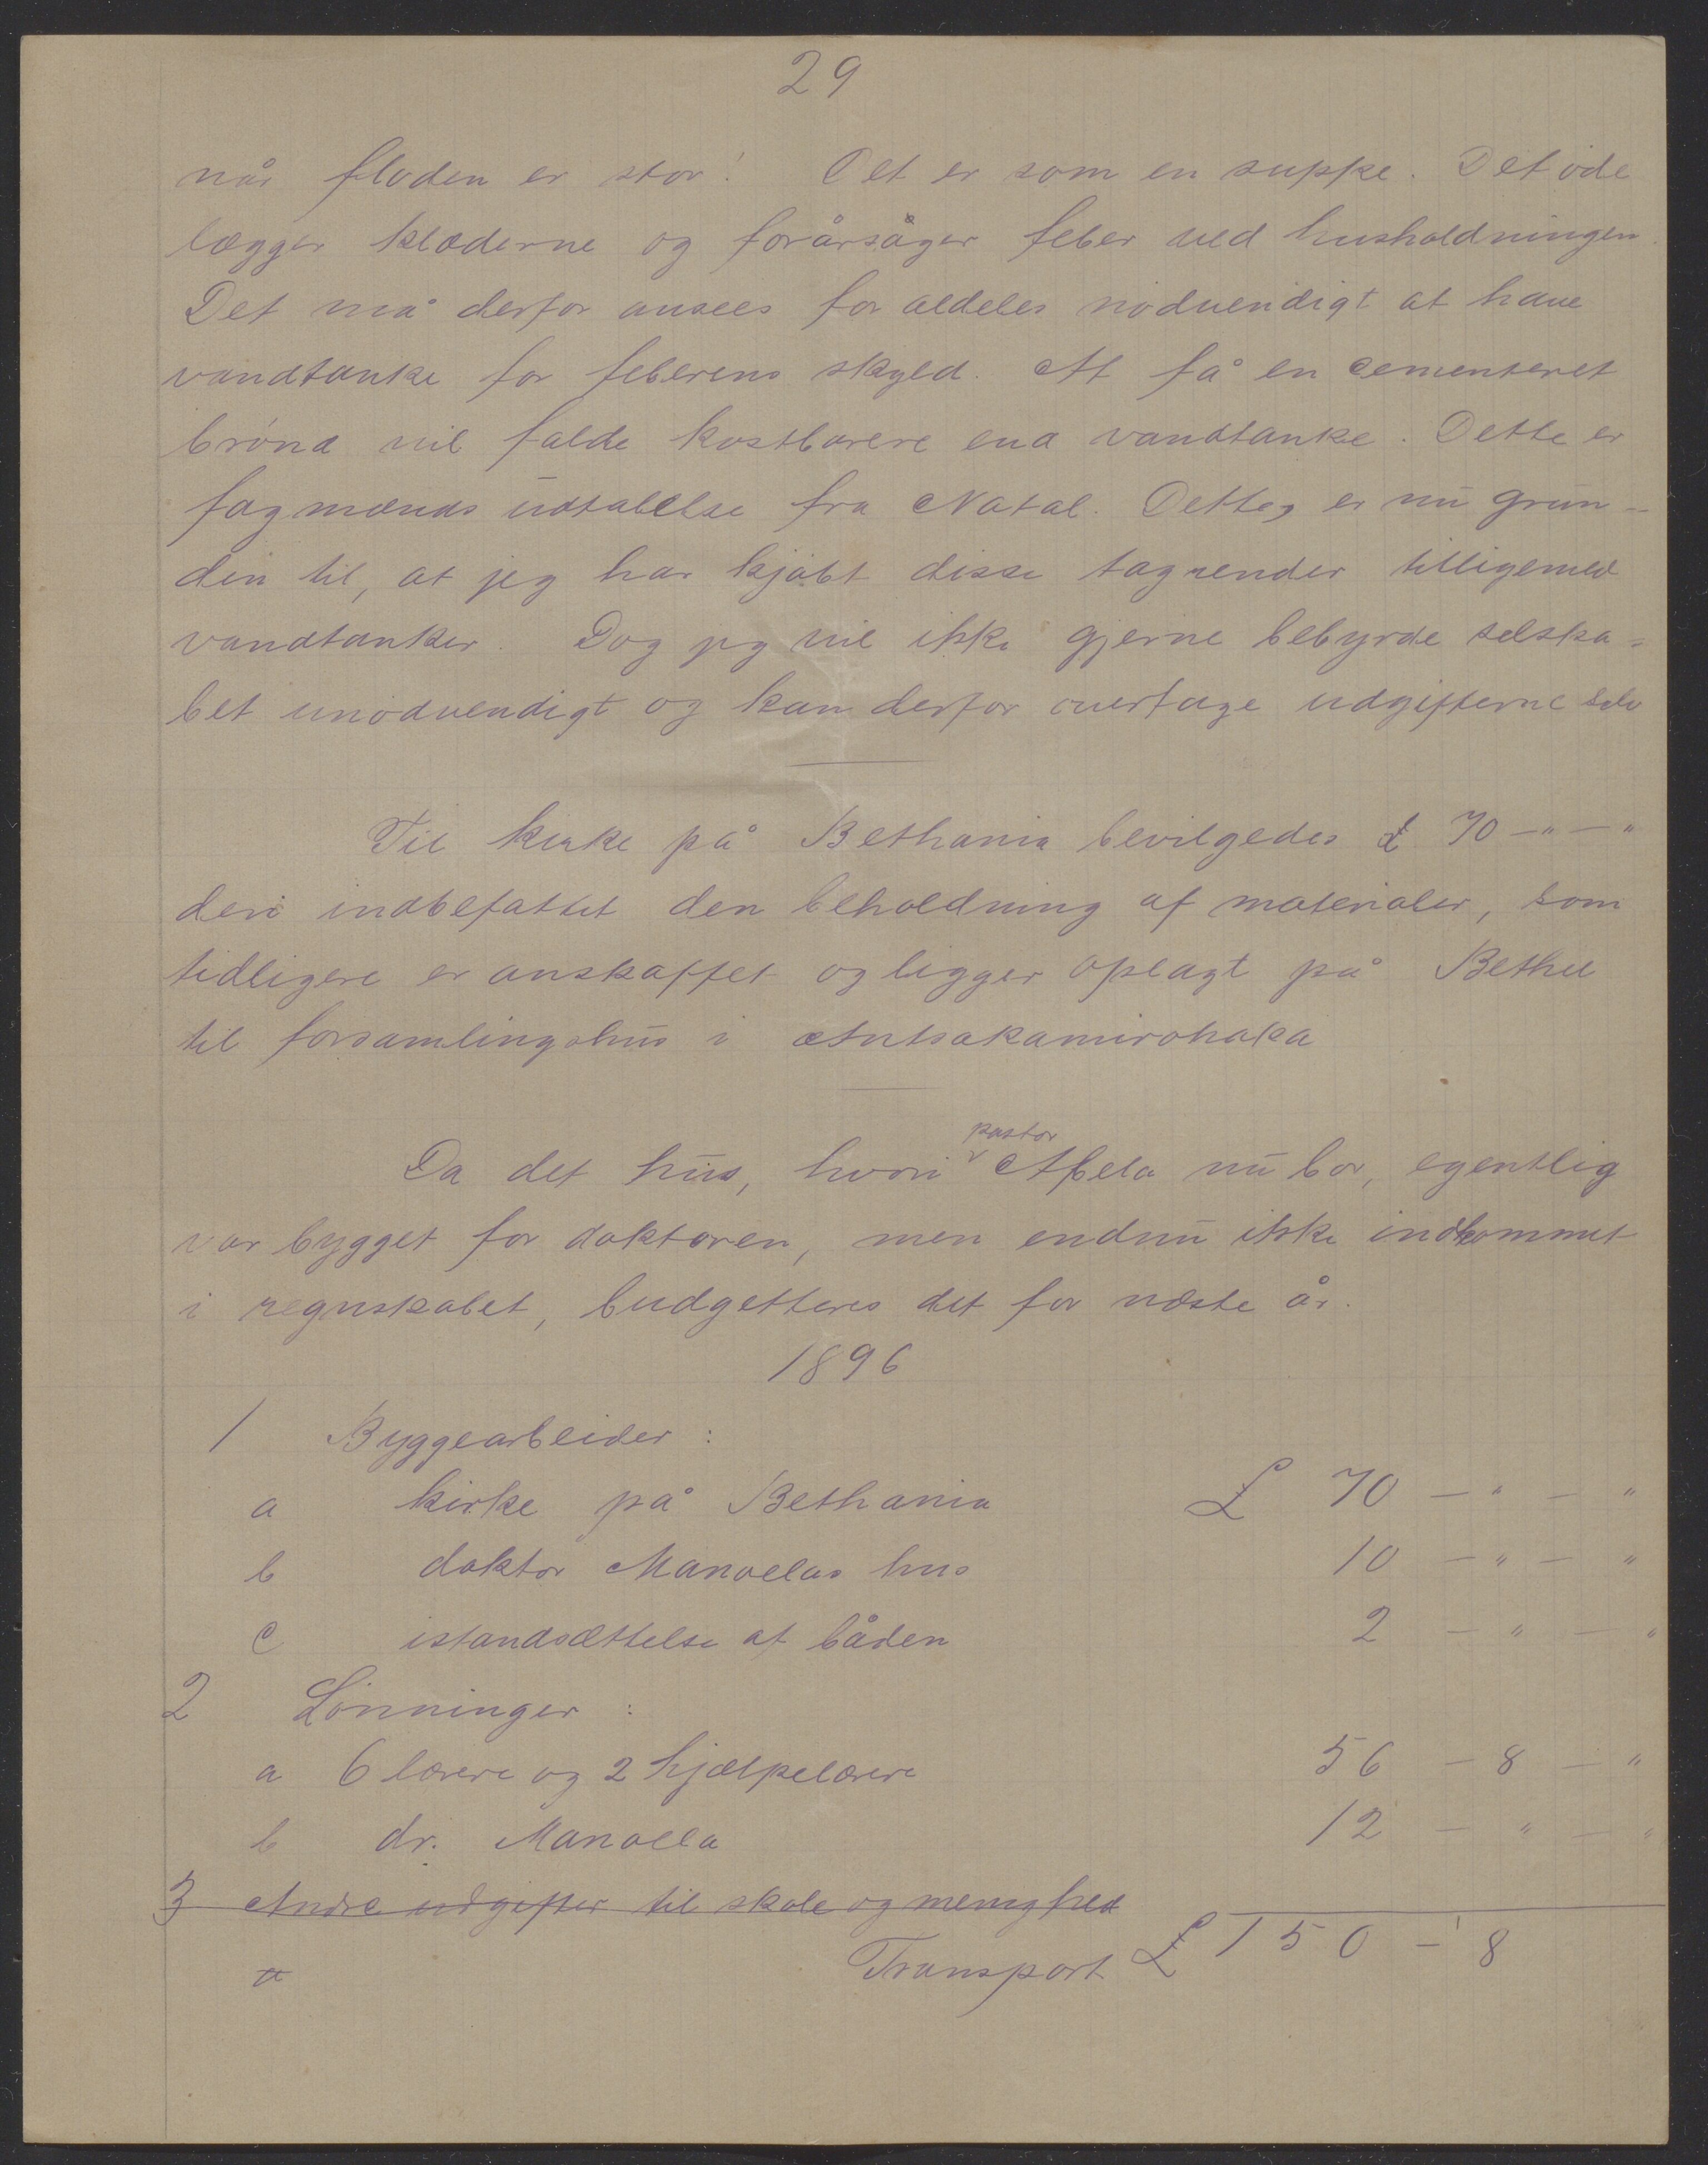 29
når floden er stor! Det er som en suppe. Det øde
lægger klæderne og forårsåger feber ved husholdningen.
Det må derfor ansees for aldeles nødvendigt at have
vandtanke for feberens skyld. At få en cementeret
brønd vil falde kostbarere end vandtanke. Dette er
fagmænds udtalelse fra Natal. Dette, er nu grun-
den til, at jeg har kjøbt disse tagrender tilligemed
vandtanker. Dog jeg vil ikke gjerne bebyrde selska-
bet unødvendigt og kan derfor overtage udgifterne selv
Til kirke på Bethania bevilgedes £ 70 - " - "
deri indbefattet den beholdning af materialer, som
tidligere er anskaffet og ligger oplagt på Bethel
til forsamlingshus i Antsakamirohaka
pastor
Da det hus, hvori Abela nu bor, egentlig
var bygget for doktoren, men endnu ikke indkommet
i regnskabet, budgetteres det for næste år.
1896
1 Byggearbeider:
a kirke på Bethania £ 70 - " - "
b doktor Manoelas hus 10 - " - "
c istandsættelse af båden 2 - " - "
2 Lønninger:
a 6 lærere og 2 hjælpelærere 56 - 8 - "
b dr. Manoela 12 - " - "
3 Andre udgifter til skole og menighed
a Transport £ 150 - 8